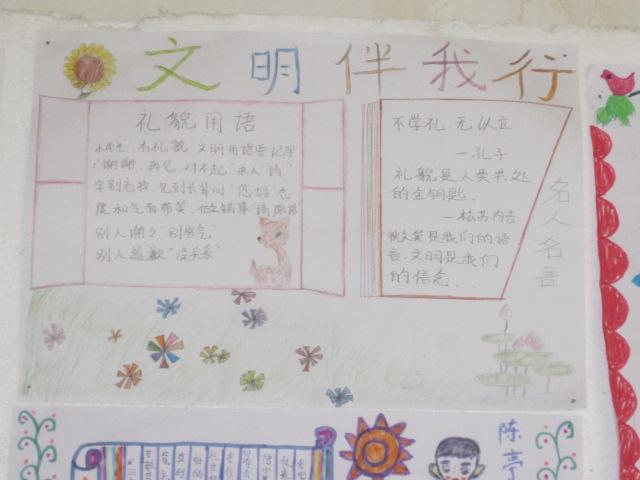 文明伴我行
礼貌用语
小学生,有礼貌,文明用语要记牢
"谢谢、再见、对不起"求人"请"
字别忘掉,见到长辈问"您好"态
度和气面带笑,做错事"请原谅
别人谢々"别客气"
别人道歉"没关系"
不学礼 无以立
—孔子
礼貌是人类共处
的金钥匙.
—松苏内吉
微笑是我们的语
言.文明是我们
的信念...
名人名言
陈亭